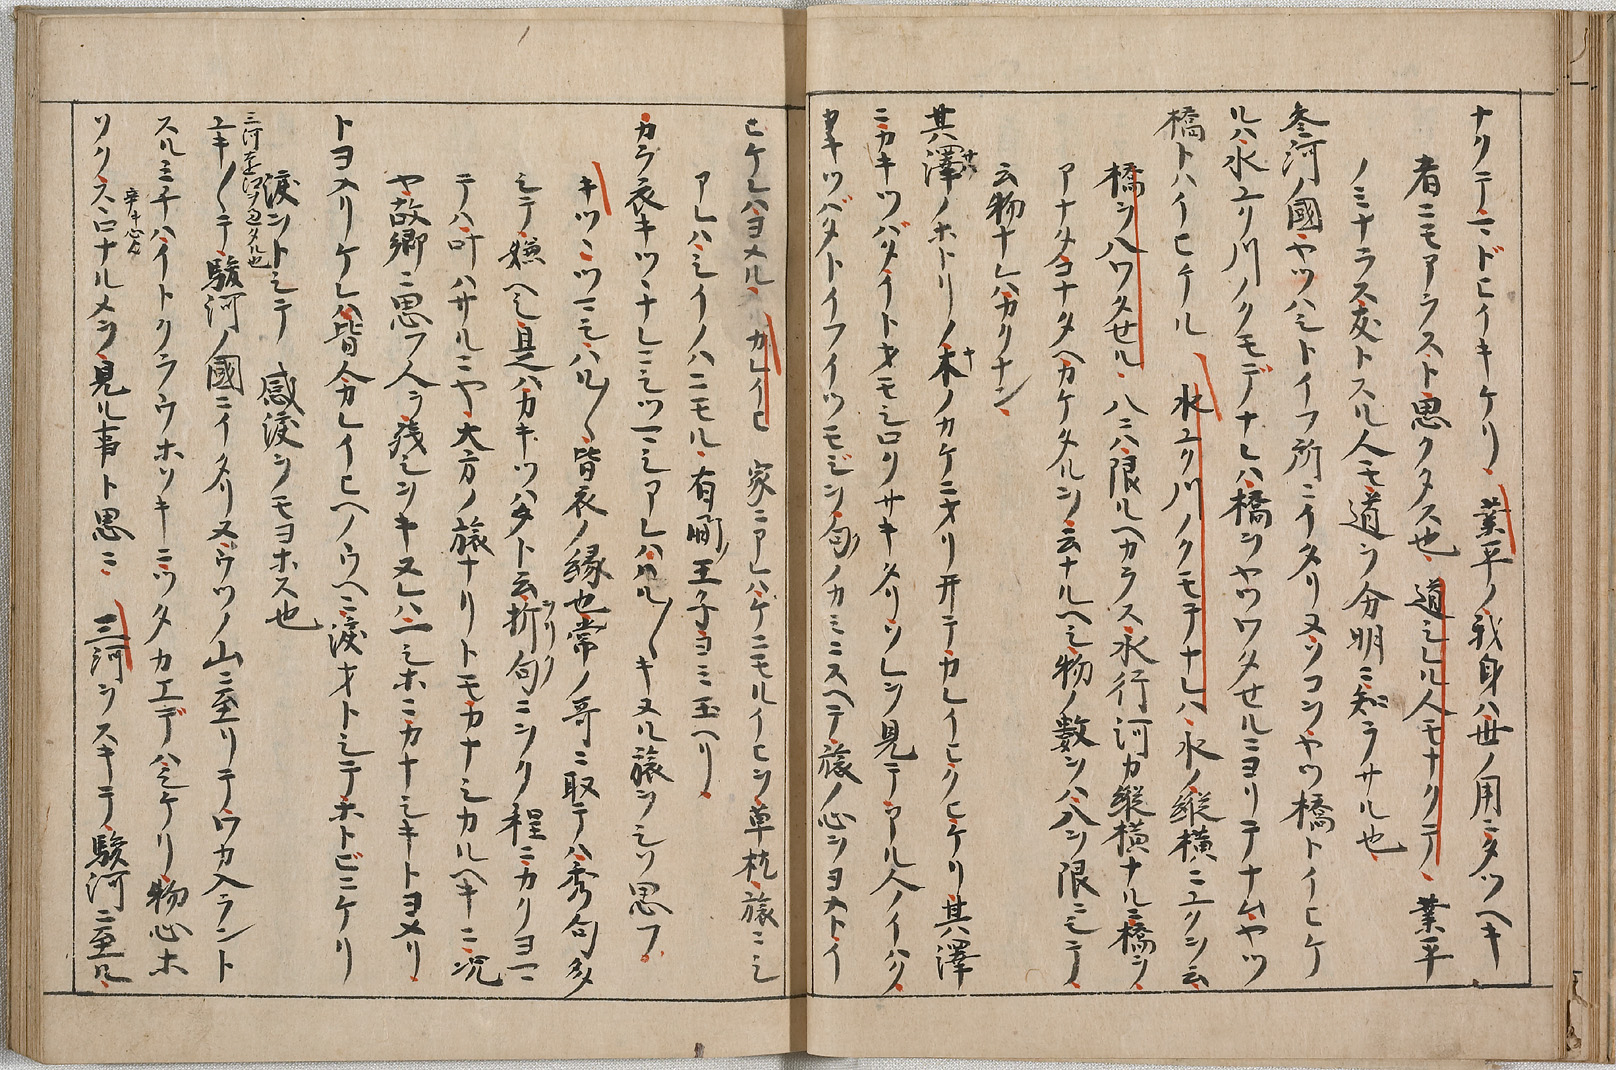 ナクテマドヒイキケリ 業平ノ我身ハ世ノ用ニタツヘキ
者ニモアラスト思クタス也 道シレル人モナクテ 業平
ノミナラス友トスル人モ道ヲ分明ニ知ラサル也
参河ノ國ヤツハシトイフ所ニイタリヌソコヲヤツ橋トイヒケ
ルハ水ユク川ノクモデナレハ橋ヲヤツワタせルニヨリテナムヤツ
橋トハイヒケル 水ユク川ノクモテナレハ 水ノ縦横ニユクヲ云
橋ヲ八ワタせル 八ニハ限ルヘカラス水行河カ縦横ナルニ橋ヲ
アナタヨナタヘカケタルヲ云ナルヘシ物ノ數ヲハ八ヲ限ニモテ
云物ナレハカクナン
其澤ノホトリノ木ノカケニオリ井テカレイヒクヒケリ其澤
ニカキツバタイトオモシロクサキタリソレヲ見テアル人ノイハク
カキツバタトイフイツモジヲ句ノカミニスヘテ旅ノ心ヲヨメトイ
ヒケレハヨメル カレイヒ 家ニアレハケニモルイヒヲ草枕旅ニシ
アレハシイノハニモル 有間王子ヨミ玉ヘリ
カラ衣キツヽナレニシツマシアレハハル〳〵キヌル旅ヲシソ思フ
キツヽツマシハル〳〵皆衣ノ縁也常ノ哥ニ取テハ秀句多
シテ嫌ヘシ是ハカキツハタト云折句ニヲク程ニカクヨマ
テハ叶ハサルニヤ大方ノ旅ナリトモカナシカルヘキニ況
ヤ故郷ニ思フ人ヲ残シヲキヌレハ一シホニカナシキトヨメリ
トヨメリケレハ皆人カレイヒノウヘニ涙オトシテホトビニケリ
涙ヲトシテ 感涙ヲモヨホス也
ユキ〳〵テ駿河ノ國ニイタリヌウツノ山ニ至リテワカ入ラント
スルミチハイトクラウホソキニツタカエデハシケリ物心ホ
ソクスロナルメヲ見ル事ト思ニ 三河ヲスキテ駿河ニ至ル